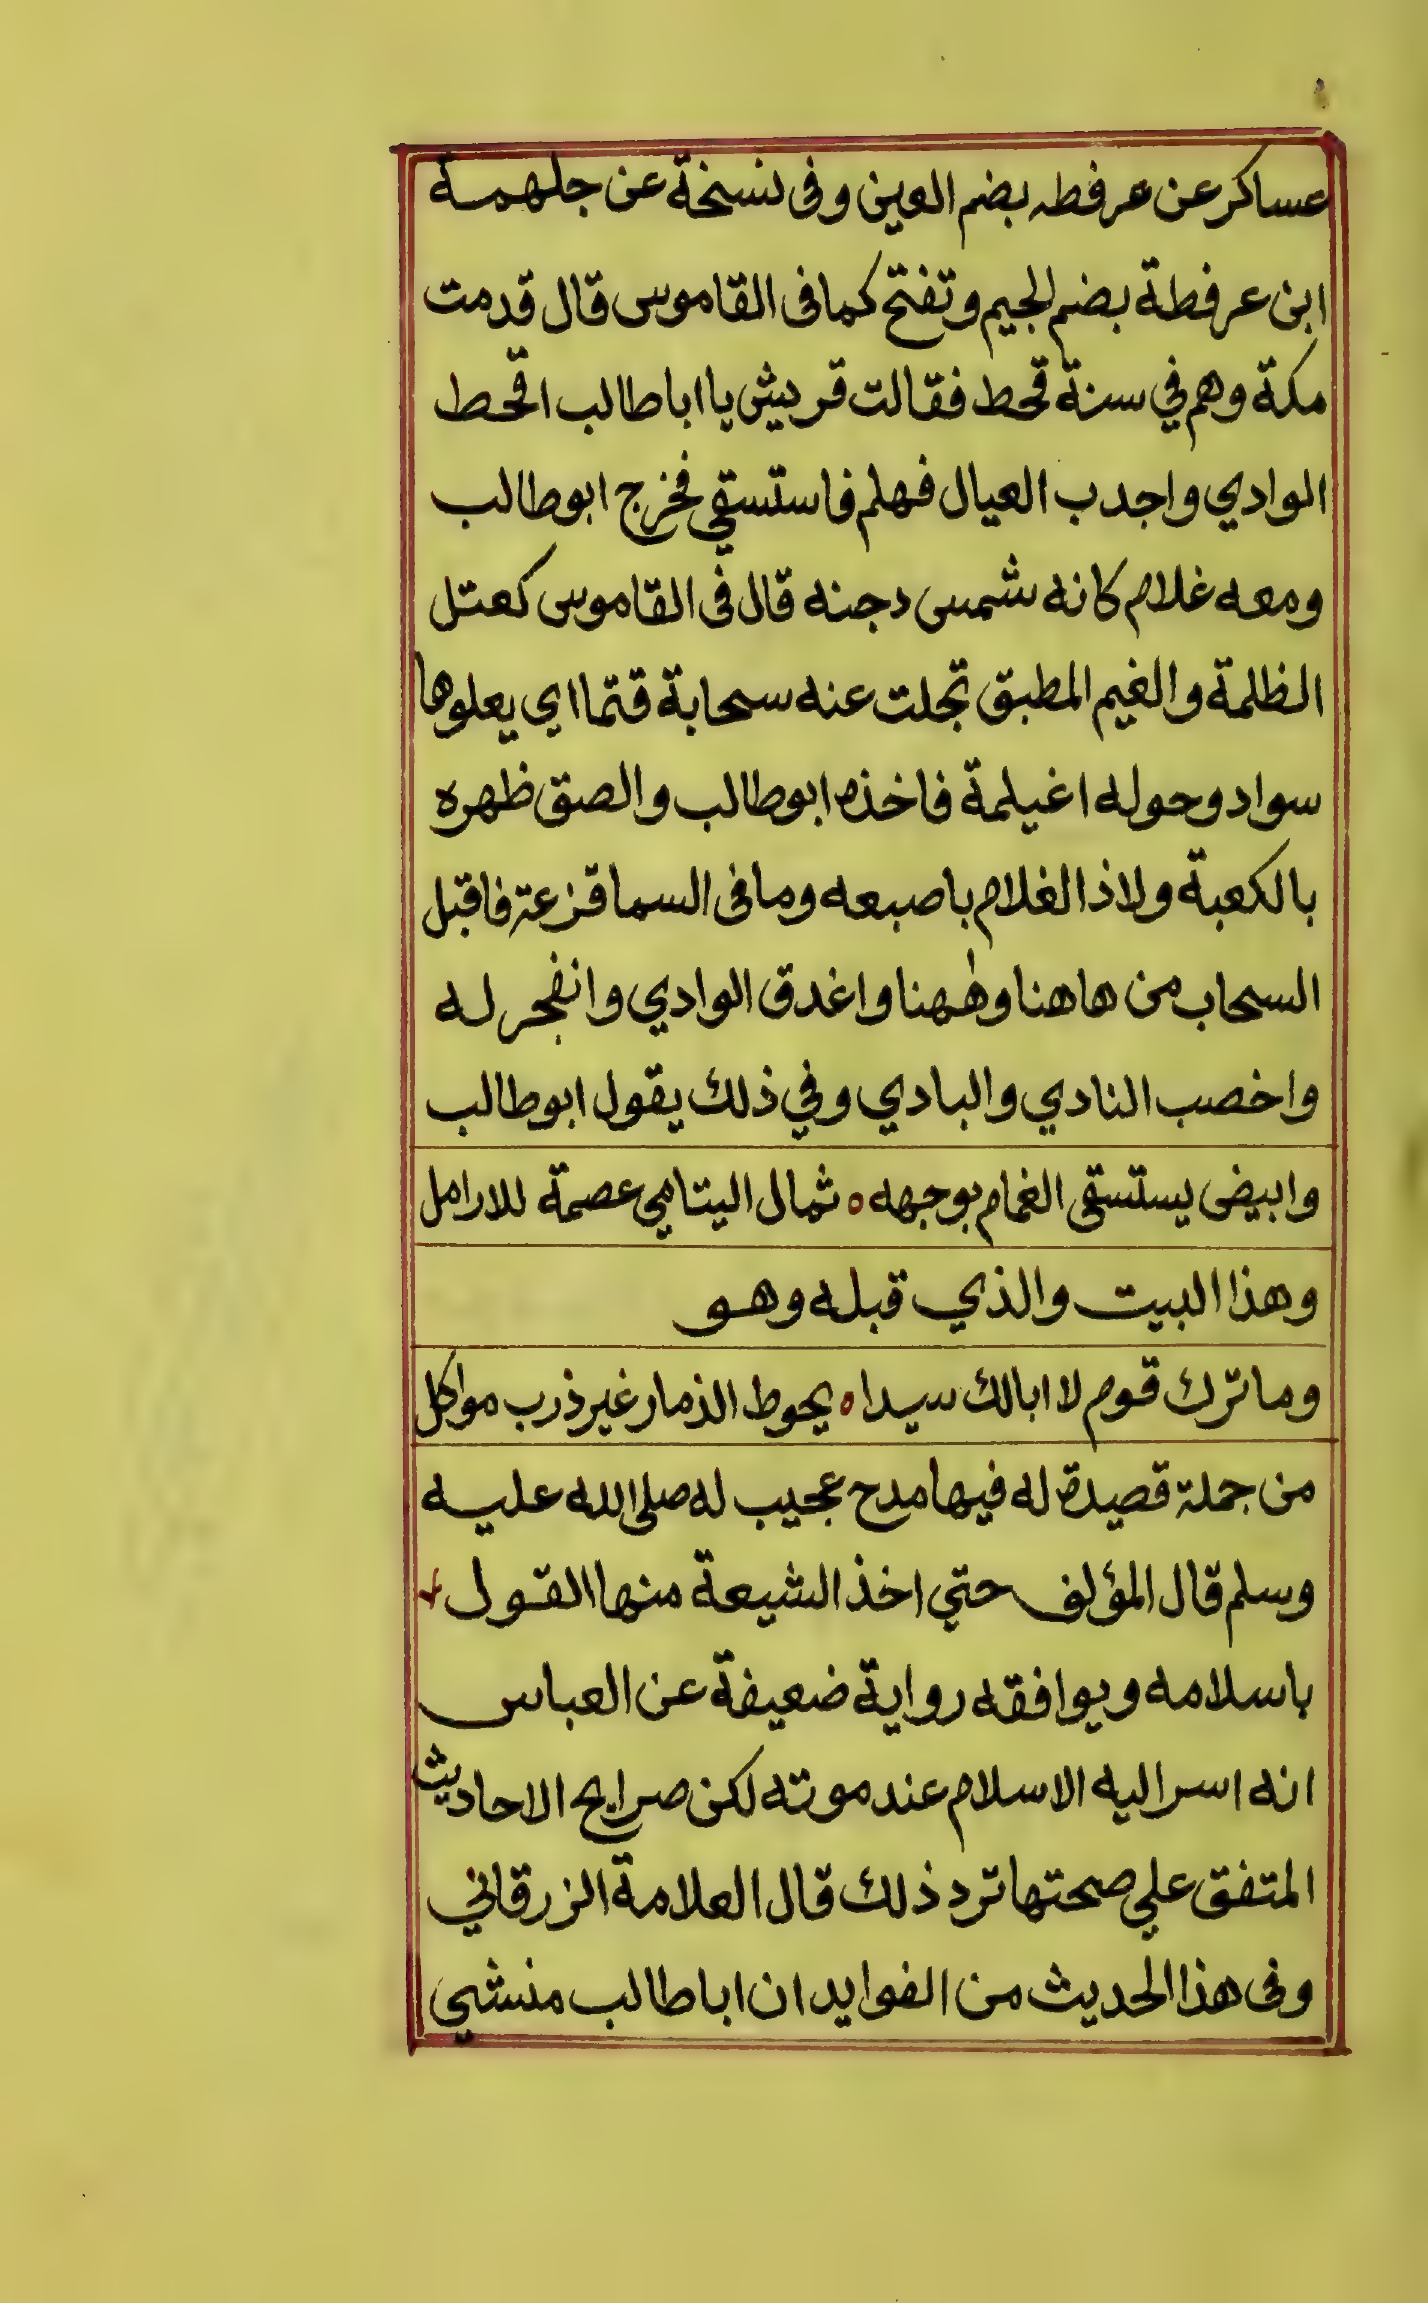 عساكر عن عرفطه بضم العين وفى نسخة عن جلهمة
ابن عرفطة بضم الجيم وتفتح كما فى القاموس قال قدمت
مكة وهم في سنة قحط فقالت قريش يا ابا طالب اقحط
الوادي واجدب العيال فهلم فاستسقي فخرج ابو طالب
ومعه غلام كانه شمس دجنه قال فى القاموس كعتل
الظلمة والغيم المطبق تجلت عنه سحابة قتما اي يعلوها
سواد وحوله اغيلمة فاخذه ابو طالب والصق ظهره
بالكعبة ولاذ الغلام باصبعه وما فى السما قزعة فاقبل
السحاب من هاهنا وههنا واغدق الوادي وانفجر له
واخصب النادي والبادي وفي ذلك يقول ابو طالب
وابيض يستسقى الغمام بوجهه ه ثمال اليتامي عصمة للارامل
وهذا البيت والذي قبله وهو
وما ترك قوم لا ابالك سيدا ه يحوط الذمار غير ذرب مواكل
من جملة قصيدة له فيها مدح عجيب له صلى الله عليه
وسلم قال المؤلف حتي اخذ الشيعة منها القول
باسلامه ويوافقه رواية ضعيفة عن العباس
انه اسر اليه الاسلام عند موته لكن صرايح الاحاديث
المتفق علي صحتها ترد ذلك قال العلامة الزرقاني
وفى هذا الحديث من الفوايد ان ابا طالب منشي